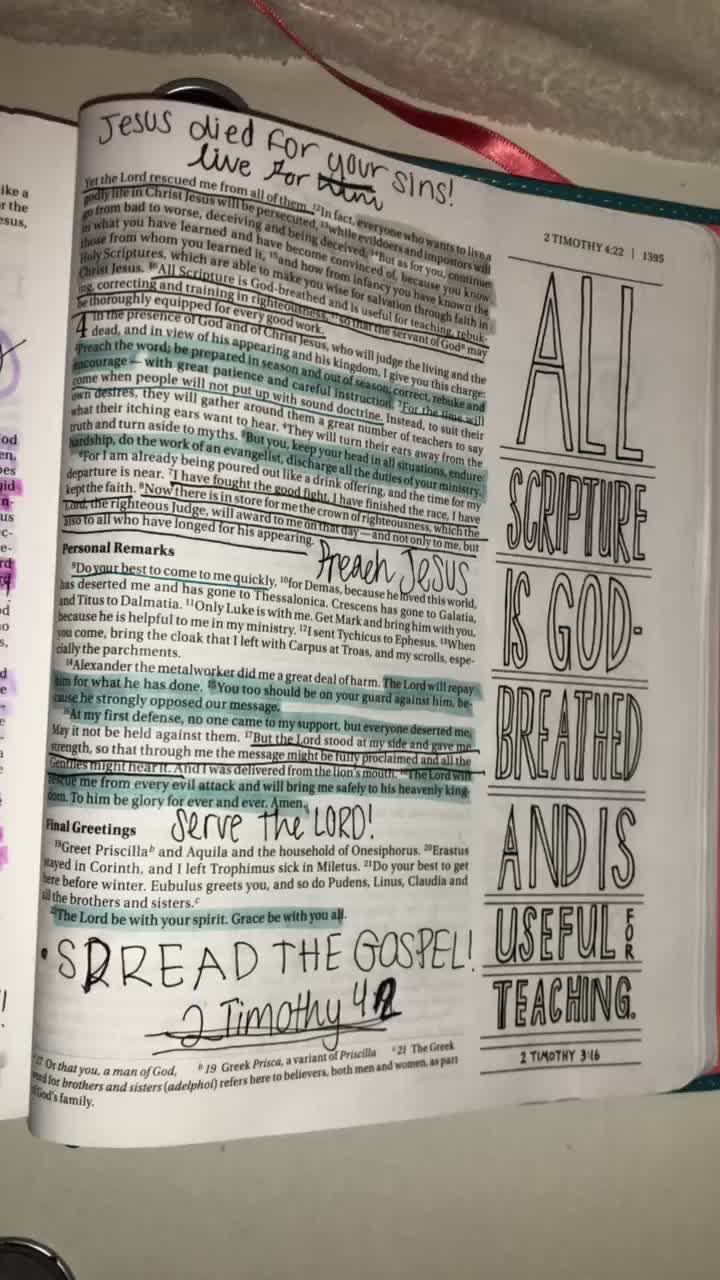 Jesus died for your sins!
live for
Yet the Lord rescued me from all of them. 12In fact, everyone who wants to live a
godly life in Christ Jesus will be persecuted, 13while evildoers and impostors will
go from bad to worse, deceiving and being deceived. 14But as for you, continue
in what you have learned and have become convinced of, because you know
those from whom you learned it, 15and how from infancy you have known the
Holy Scriptures, which are able to make you wise for salvation through faith in
Christ Jesus. 16All Scripture is God-breathed and is useful for teaching, rebuk-
ing, correcting and training in righteousness, 17so that the servant of Goda may
be thoroughly equipped for every good work.
4 In the presence of God and of Christ Jesus, who will judge the living and the
dead, and in view of his appearing and his kingdom, I give you this charge:
2Preach the word; be prepared in season and out of season; correct, rebuke and
encourage — with great patience and careful instruction. 3For the time will
come when people will not put up with sound doctrine. Instead, to suit their
own desires, they will gather around them a great number of teachers to say
what their itching ears want to hear. 4They will turn their ears away from the
truth and turn aside to myths. 5But you, keep your head in all situations, endure
hardship, do the work of an evangelist, discharge all the duties of your ministry.
6For I am already being poured out like a drink offering, and the time for my
departure is near. 7I have fought the good fight, I have finished the race, I have
kept the faith. 8Now there is in store for me the crown of righteousness, which the
Lord, the righteous Judge, will award to me on that day — and not only to me, but
also to all who have longed for his appearing.
Preach Jesus
Personal Remarks
9Do your best to come to me quickly, 10for Demas, because he loved this world,
has deserted me and has gone to Thessalonica. Crescens has gone to Galatia,
and Titus to Dalmatia. 11Only Luke is with me. Get Mark and bring him with you,
because he is helpful to me in my ministry. 12I sent Tychicus to Ephesus. 13When
you come, bring the cloak that I left with Carpus at Troas, and my scrolls, espe-
cially the parchments.
14Alexander the metalworker did me a great deal of harm. The Lord will repay
him for what he has done. 15You too should be on your guard against him, be-
cause he strongly opposed our message.
16At my first defense, no one came to my support, but everyone deserted me.
May it not be held against them. 17But the Lord stood at my side and gave me
strength, so that through me the message might be fully proclaimed and all the
Gentiles might hear it. And I was delivered from the lion's mouth. 18The Lord will
rescue me from every evil attack and will bring me safely to his heavenly king-
dom. To him be glory for ever and ever. Amen.
Serve the LORD!
Final Greetings
19Greet Priscillab and Aquila and the household of Onesiphorus. 20Erastus
stayed in Corinth, and I left Trophimus sick in Miletus. 21Do your best to get
here before winter. Eubulus greets you, and so do Pudens, Linus, Claudia and
all the brothers and sisters.c
22The Lord be with your spirit. Grace be with you all.
• SPREAD THE GOSPEL!
2 Timothy 4:2
a 17 Or that you, a man of God, b 19 Greek Prisca, a variant of Priscilla c 21 The Greek
word for brothers and sisters (adelphoi) refers here to believers, both men and women, as part
of God's family.
2 TIMOTHY 4:22 | 1395
ALL
SCRIPTURE
IS GOD-
BREATHED
AND IS
USEFUL FOR
TEACHING.
2 TIMOTHY 3:16